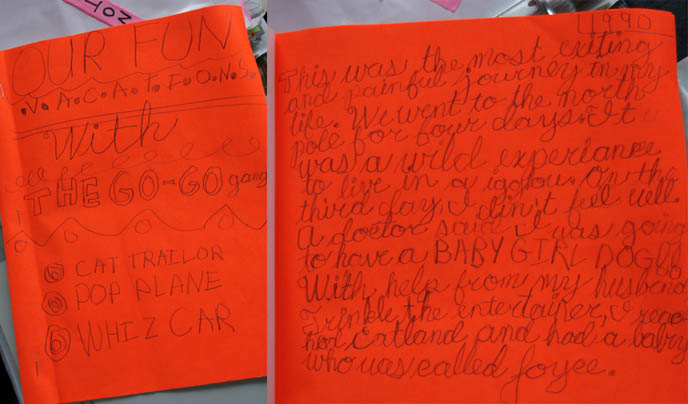 OUR FUN
V.A.C.A.T.I.O.N.S.
With
THE GO-GO gang
CAT TRAILOR
POP PLANE
WHIZ CAR
1990
This was the most exiting
and painful journey in my
life. We went to the north
pole for four days. It
was a wild experiance
to live in a iggolou. On the
third day I din't feel well.
A doctor said I was going
to have a BABY GIRL DOG!
With help from my husbend
Trinkle the entertainer, I reac
hed Irtland and had a babiy
who was called Joyee.